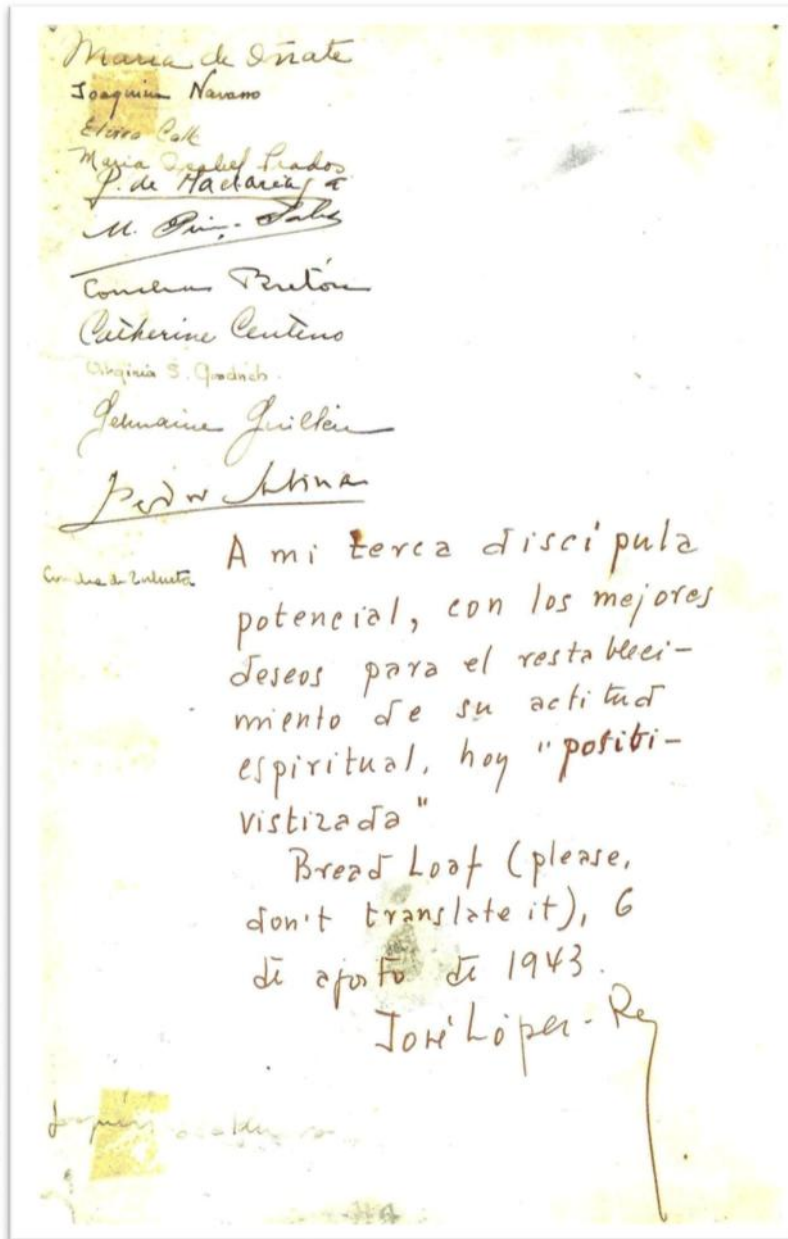 Maria de Oñate
Joaquina Navarro
Elvira
Maria Isabel Prados
P. de Madariaga
M.
Concha Bretón
Catherine Centeno
Virginia S. Goodrich
Germaine Guillén
Pedro Salinas
Concha de Zulueta
A mi terca discípula
potencial, con los mejores
deseos para el restableci-
miento de su actitud
espiritual, hoy "positi-
vistizada"
Bread Loaf (please,
don't translate it), 6
de agosto de 1943.
José López-Rey
Joaquín